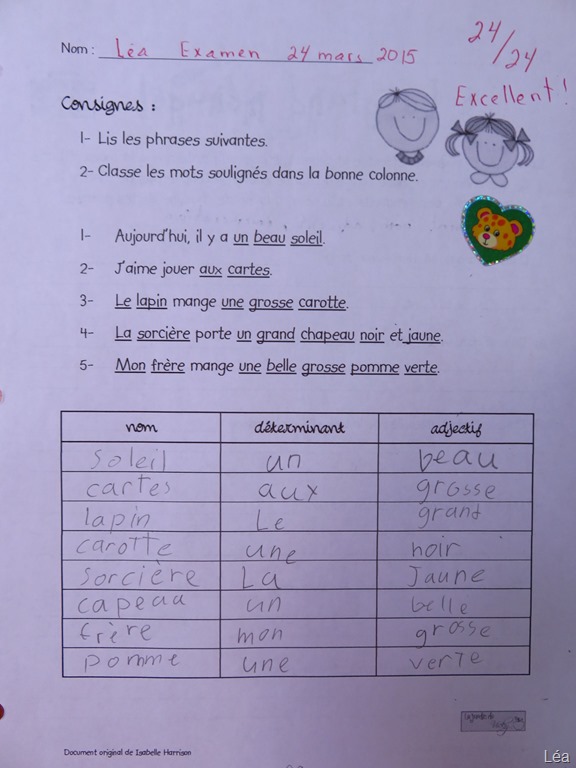 Nom : Léa Examen 24 mars 2015
24/24
Excellent !
Consignes :
1- Lis les phrases suivantes.
2- Classe les mots soulignés dans la bonne colonne.
1- Aujourd'hui, il y a un beau soleil.
2- J'aime jouer aux cartes.
3- Le lapin mange une grosse carotte.
4- La sorcière porte un grand chapeau noir et jaune.
5- Mon frère mange une belle grosse pomme verte.
nom déterminant adjectif
soleil un beau
cartes aux grosse
lapin Le grand
carotte une noir
sorcière La Jaune
capeau un belle
frère mon grosse
pomme une verte
Document original de Isabelle Harrison
Léa